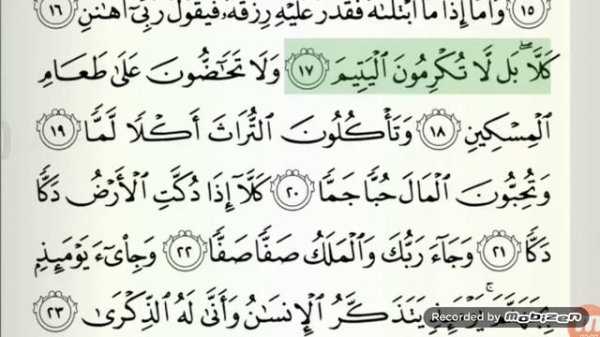 ١٥ وَأَمَّآ إِذَا مَا ٱبْتَلَىٰهُ فَقَدَرَ عَلَيْهِ رِزْقَهُۥ فَيَقُولُ رَبِّىٓ أَهَـٰنَنِ ١٦
كَلَّا ۖ بَل لَّا تُكْرِمُونَ ٱلْيَتِيمَ ١٧ وَلَا تَحَـٰٓضُّونَ عَلَىٰ طَعَامِ
ٱلْمِسْكِينِ ١٨ وَتَأْكُلُونَ ٱلتُّرَاثَ أَكْلًا لَّمًّا ١٩
وَتُحِبُّونَ ٱلْمَالَ حُبًّا جَمًّا ٢٠ كَلَّآ إِذَا دُكَّتِ ٱلْأَرْضُ دَكًّا
دَكًّا ٢١ وَجَآءَ رَبُّكَ وَٱلْمَلَكُ صَفًّا صَفًّا ٢٢ وَجِا۟ىٓءَ يَوْمَئِذِۭ
بِجَهَنَّمَ ۚ يَوْمَئِذٍ يَتَذَكَّرُ ٱلْإِنسَـٰنُ وَأَنَّىٰ لَهُ ٱلذِّكْرَىٰ ٢٣
Recorded by
MOBIZEN